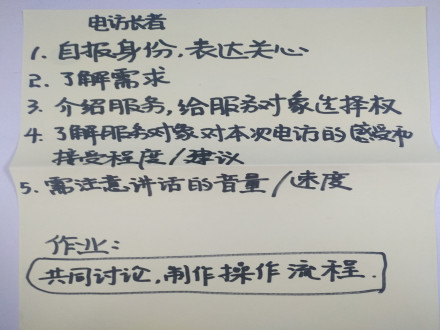 电访长者
1. 自报身份，表达关心
2. 了解需求
3. 介绍服务，给服务对象选择权
4. 了解服务对象对本次电访的感受和
接受程度/建议
5. 需注意讲话的音量/速度
作业：
共同讨论，制作操作流程.